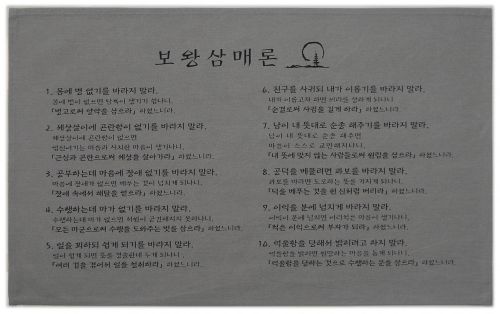 보왕삼매론
1. 몸에 병 없기를 바라지 말라.
몸에 병이 없으면 탐욕이 생기기 쉽나니,
「병고로써 양약을 삼으라」 하셨느니라.
2. 세상살이에 곤란함이 없기를 바라지 말라.
세상살이에 곤란함이 없으면
업신여기는 마음과 사치한 마음이 생기나니,
「근심과 곤란으로써 세상을 살아가라」 하셨느니라.
3. 공부하는데 마음에 장애 없기를 바라지 말라.
마음에 장애가 없으면 배우는 것이 넘치게 되나니,
「장애 속에서 해탈을 얻으라」 하셨느니라.
4. 수행하는데 마가 없기를 바라지 말라.
수행하는데 마가 없으면 서원이 굳건해지지 못하나니,
「모든 마군으로써 수행을 도와주는 벗을 삼으라」 하셨느니라.
5. 일을 꾀하되 쉽게 되기를 바라지 말라.
일이 쉽게 되면 뜻을 경솔한데 두게 되나니,
「여러 겁을 겪어서 일을 성취하라」 하셨느니라.
6. 친구를 사귀되 내가 이롭기를 바라지 말라.
내가 이롭고자 하면 의리를 상하게 되나니,
「순결로써 사귐을 길게 하라」 하셨느니라.
7. 남이 내 뜻대로 순종 해주기를 바라지 말라.
남이 내 뜻대로 순종해주면
마음이 스스로 교만해지나니,
「내 뜻에 맞지 않는 사람들로써 원림을 삼으라」 하셨느니라.
8. 공덕을 베풀려면 과보를 바라지 말라.
과보를 바라면 도모하는 뜻을 가지게 되나니,
「덕을 베푸는 것을 헌 신처럼 버리라」 하셨느니라.
9. 이익을 분에 넘치게 바라지 말라.
이익이 분에 넘치면 어리석은 마음이 생기나니,
「적은 이익으로써 부자가 되라」 하셨느니라.
10. 억울함을 당해서 밝히려고 하지 말라.
억울함을 밝히면 원망하는 마음을 돕게 되나니,
「억울함을 당하는 것으로 수행하는 문을 삼으라」 하셨느니라.